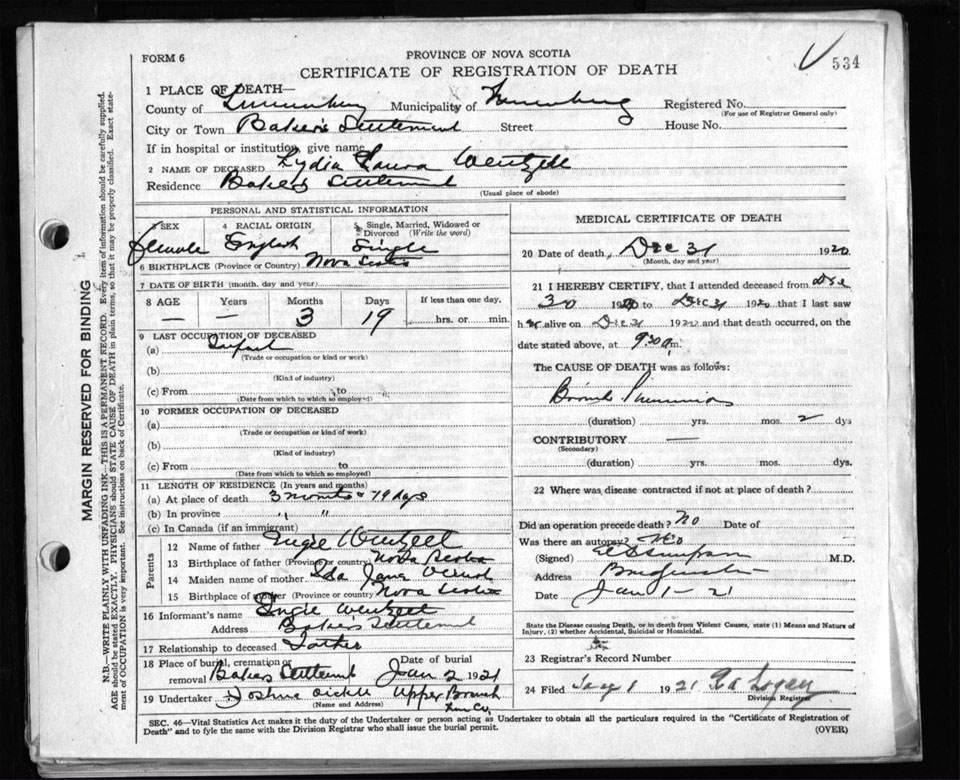 FORM 6
PROVINCE OF NOVA SCOTIA
CERTIFICATE OF REGISTRATION OF DEATH
534
1 PLACE OF DEATH—
County of Lunenburg Municipality of Lunenburg Registered No.
(For use of Registrar General only)
City or Town Baker's Settlement Street House No.
If in hospital or institution, give name
2 NAME OF DECEASED Lydia Laura Wentzell
Residence Bakers Settlement
(Usual place of abode)
PERSONAL AND STATISTICAL INFORMATION
3 SEX 4 RACIAL ORIGIN 5 Single, Married, Widowed or Divorced (Write the word)
female English Single
6 BIRTHPLACE (Province or Country) Nova Scotia
7 DATE OF BIRTH (month, day and year)
8 AGE Years Months Days If less than one day,
— — 3 19 hrs. or min.
9 LAST OCCUPATION OF DECEASED
(a) Infant
(Trade or occupation or kind or work)
(b)
(Kind of industry)
(c) From to
(Date from which to which so employed)
10 FORMER OCCUPATION OF DECEASED
(a)
(Trade or occupation or kind of work)
(b)
(Kind of industry)
(c) From to
(Date from which to which so employed)
11 LENGTH OF RESIDENCE (In years and months)
(a) At place of death 3 months 19 days
(b) In province " "
(c) In Canada (if an immigrant)
Parents
12 Name of father Engle Wentzell
13 Birthplace of father (Province or country) Nova Scotia
14 Maiden name of mother Ida Jane
15 Birthplace of mother (Province or country) Nova Scotia
16 Informant's name Engle Wentzell
Address Bakers Settlement
17 Relationship to deceased Father
18 Place of burial, cremation or removal Bakers Settlement Date of burial Jan 2 1921
19 Undertaker Joshua Upper Branch
(Name and Address) Lun Co.
MEDICAL CERTIFICATE OF DEATH
20 Date of death, Dec 31 1920
(Month, day and year)
21 I HEREBY CERTIFY, that I attended deceased from Dec
30 1920 to Dec 31 1920 that I last saw
her alive on Dec 31 1920 and that death occurred, on the
date stated above, at 9.30 a m.
The CAUSE OF DEATH was as follows:
Broncho Pneumonia
(duration) yrs. mos. 2 dys
CONTRIBUTORY —
(Secondary)
(duration) yrs. mos. dys.
22 Where was disease contracted if not at place of death?
Did an operation precede death? No Date of
Was there an autopsy? No
(Signed) M.D.
Address Bridgewater
Date Jan 1 - 21
State the Disease causing Death, or in death from Violent Causes, state (1) Means and Nature of Injury, (2) whether Accidental, Suicidal or Homicidal.
23 Registrar's Record Number
24 Filed Jany 1 1921
Division Registrar
SEC. 46—Vital Statistics Act makes it the duty of the Undertaker or person acting as Undertaker to obtain all the particulars required in the "Certificate of Registration of
Death" and to fyle the same with the Division Registrar who shall issue the burial permit.
(OVER)
MARGIN RESERVED FOR BINDING
N.B.—WRITE PLAINLY WITH UNFADING INK—THIS IS A PERMANENT RECORD. Every item of information should be carefully supplied.
AGE should be stated EXACTLY. PHYSICIANS should STATE CAUSE OF DEATH in plain terms, so that it may be properly classified. Exact statement of OCCUPATION is very important. See instructions on back of Certificate.